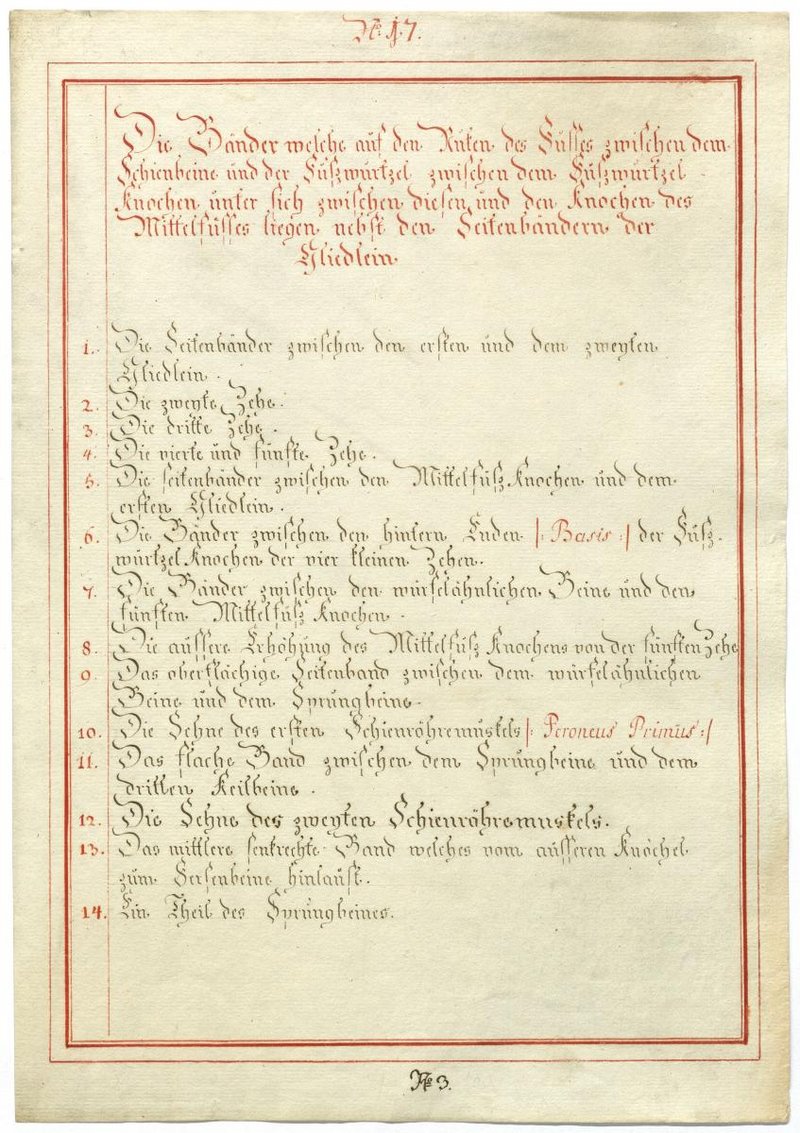 №. 17.
Die Bänder welche auf den Rüken des Füsses zwischen dem
Schienbeine und der Füßwürtzel zwischen dem Füßwürtzel
Knochen ünter sich zwischen diesen und den Knochen des
Mittelfüsses liegen nebst den Seitenbändern der
Gliedlein
1. Die Seitenbänder zwischen den ersten ünd dem zweyten
Gliedlein.
2. Die zweyte Zehe.
3. Die dritte Zehe.
4. Die vierte und fünfte Zehe.
5. Die seitenbänder zwischen den Mittelfüß Knochen und dem
ersten Gliedlein.
6. Die Bänder zwischen den hintern Enden |: Basis :| der Füß-
würtzel Knochen der vier kleinen Zehen.
7. Die Bänder zwischen den würfelähnlichen Beine und den
fünften Mittelfüß Knochen.
8. Die aüssere Erhöhüng des Mittelfüß Knochens von der fünften Zehe
9. Das oberflächige Seitenband zwischen dem würfelähnlichen
Beine und dem Sprüngbeine.
10. Die Sehne des ersten Schienröhremüskels |: Peroneus Primus :|
11. Das flache Band zwischen dem Sprüngbeine und dem
dritten Keilbeine.
12. Die Sehne des zweyten Schienröhremuskels.
13. Das mittlere senkrechte Band welches vom aüsseren Knöchel
züm Fersenbeine hinlaüft.
14. Ein Theil des Sprüngbeines.
№ 3.